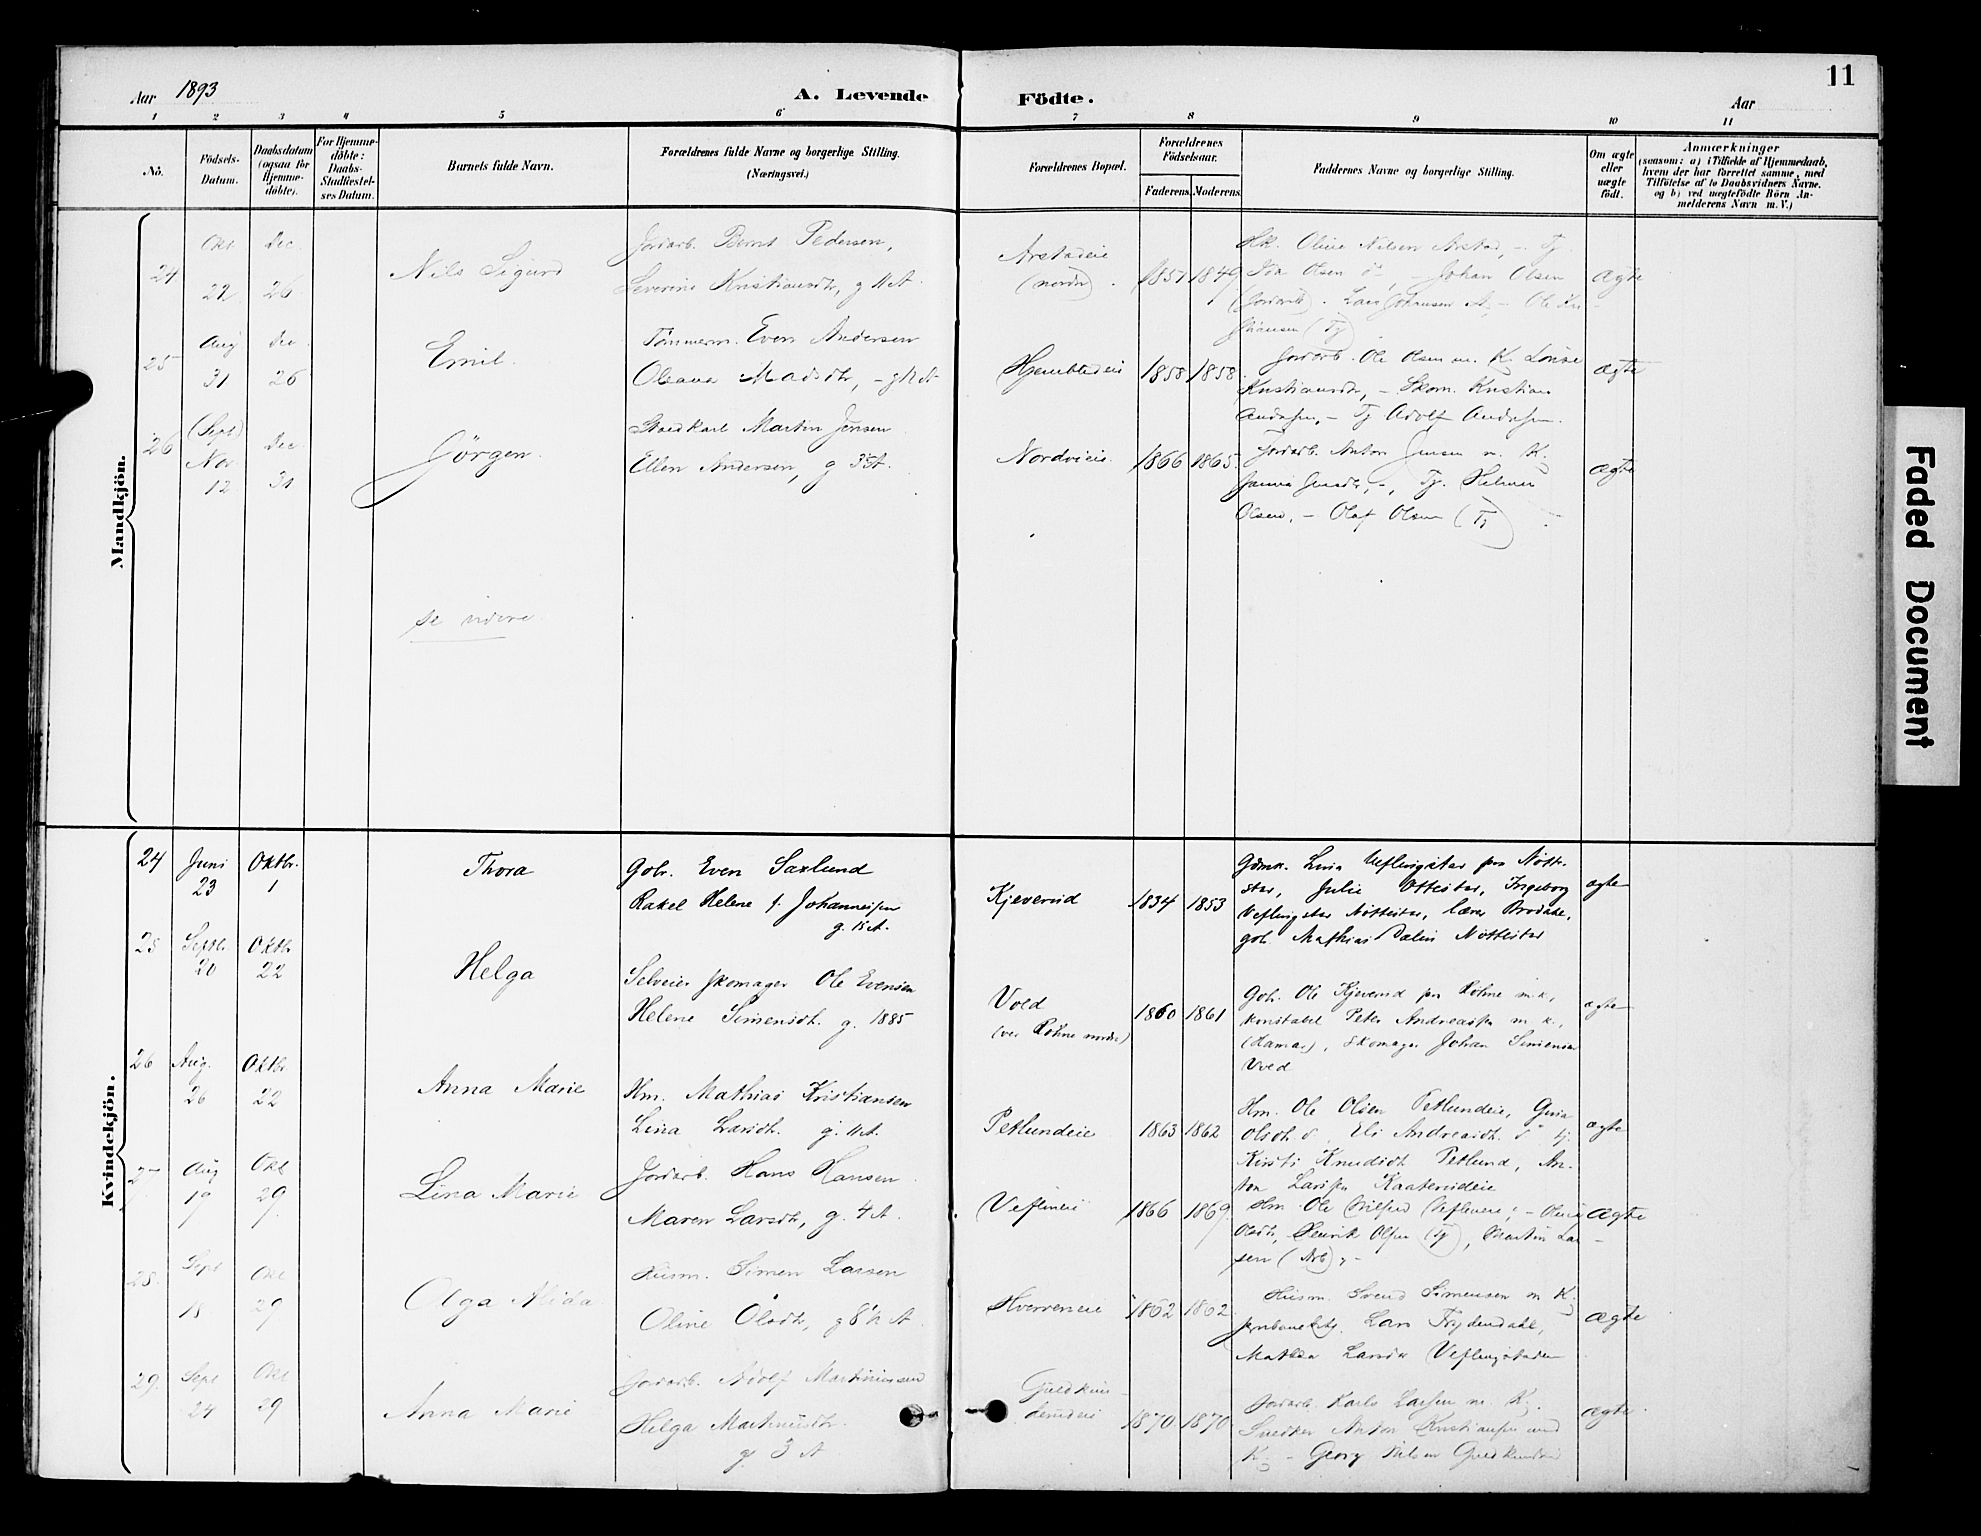 11
Aar 1893
A. Levende Födte.
Aar
1 2 3 4 5 6 7 8 9 10 11
No.
Födsels-Datum.
Daabsdatum (ogsaa för Hjemme-döbte).
For Hjemme-döbte: Daabs-Stadfæstel-ses Datum.
Barnets fulde Navn.
Forældrenes fulde Navne og borgerlige Stilling.
(Næringsvei.)
Forældrenes Bopæl.
Forældrenes Födselsaar.
Faderens. Moderens.
Faddernes Navne og borgerlige Stilling.
Om ægte eller uægte födt.
Anmærkninger
(saasom: a) i Tilfælde af Hjemmedaab,
hvem der har forrettet samme, med
Tilföielse af to Daabsvidners Navne.
og b) ved uægtefödte Börn An-
melderens Navn m. V.)
Mandkjön.
24
Okt 22
Dec 26
Nils Sigurd
Jordarb. Bernt Pedersen,
Severine Kristiansdtr, g 11 A.
Arstadeie
(nordre)
1851 1849
Olsen
Johan Olsen
Ægte
25
Aug 31
Dec 26
Emil.
Tömmerm. Even Andersen
Oleana Madsdtr,
Hjembstadeie
1858 1858
Jordarb. Ole Olsen m. K. Lovise
Kristiansdtr, - Skom. Kristian
Andersen, - Tj Adolf Andersen.
Ægte
26
(Sept) Nov. 12
Dec 31
Jörgen.
Staldkarl Martin Jensen
Ellen Andersen, g
Nordvieie
1866 1865.
Jordarb. Anton Jensen m. K.
Tj. Helmer
Olsen, - Olaf Olsen (Tj)
Ægte
se videre
Kvindekjön.
24
Juni 23
Oktbr. 1
Thora
Gbr. Even Saxlund
Rakel Helene f. Johannessen
g. 15 A.
Kjeverud
1834 1853
Julie Ottestad, Ingeborg
Nöttestad, lærer
gbr. Mathias Dælin Nöttestad
ægte
25
Septbr. 20
Oktbr 22
Helga
Selveier skomager Ole Evensen
Helene Simensdt. g. 1885
Vold
(ver Rohne nordre)
1860 1861
Gbr. Ole Kjeverud pr Rohne m. k.,
konstabel Peter Andreassen m. k.,
(Hamar), skomager Johan Simensen
Vold
ægte
26
Aug. 26
Oktbr 22
Anna Marie
Hm. Mathias Kristiansen
Lina Larsdt. g. 11 A.
Petlundeie
1863 1862
Hm. Ole Olsen Petlundeie, Gina
Olsdt. d°, Eli Andreasdt. d° tj.
Kirsti Knudsdt Petlund, An-
ton Larsen Kaaterudeie
ægte
27
Aug 19
Okt 29
Lina Marie
Jordarb. Hans Hansen
Maren Larsdtr, g. 4 A.
Veflineie
1866 1869
Olsdtr, Henrik Olsen (Tj), Martin Lar-
sen (Arb), -
Ægte
28.
Sept 18
Okt 29
Olga Alida
Husm. Simen Larsen
Oline Olsdtr, g 8½ A
Hverveneie
1862 1862
Husm. Svend Simensen m K.
Jernbanebetj. Lars Frydendahl,
Mathea Larsdtr Veflingstadeie
Ægte
29.
Sept 24
Okt 29
Anna Marie
Jordarb. Adolf Martiniussen
Helga Martinusdtr.
g 3 A
1870 1870
Jordarb. Karls Larsen m. K.
Snedker Anton Kristiansen med
K - Georg Nilsen
Ægte.
Faded Document